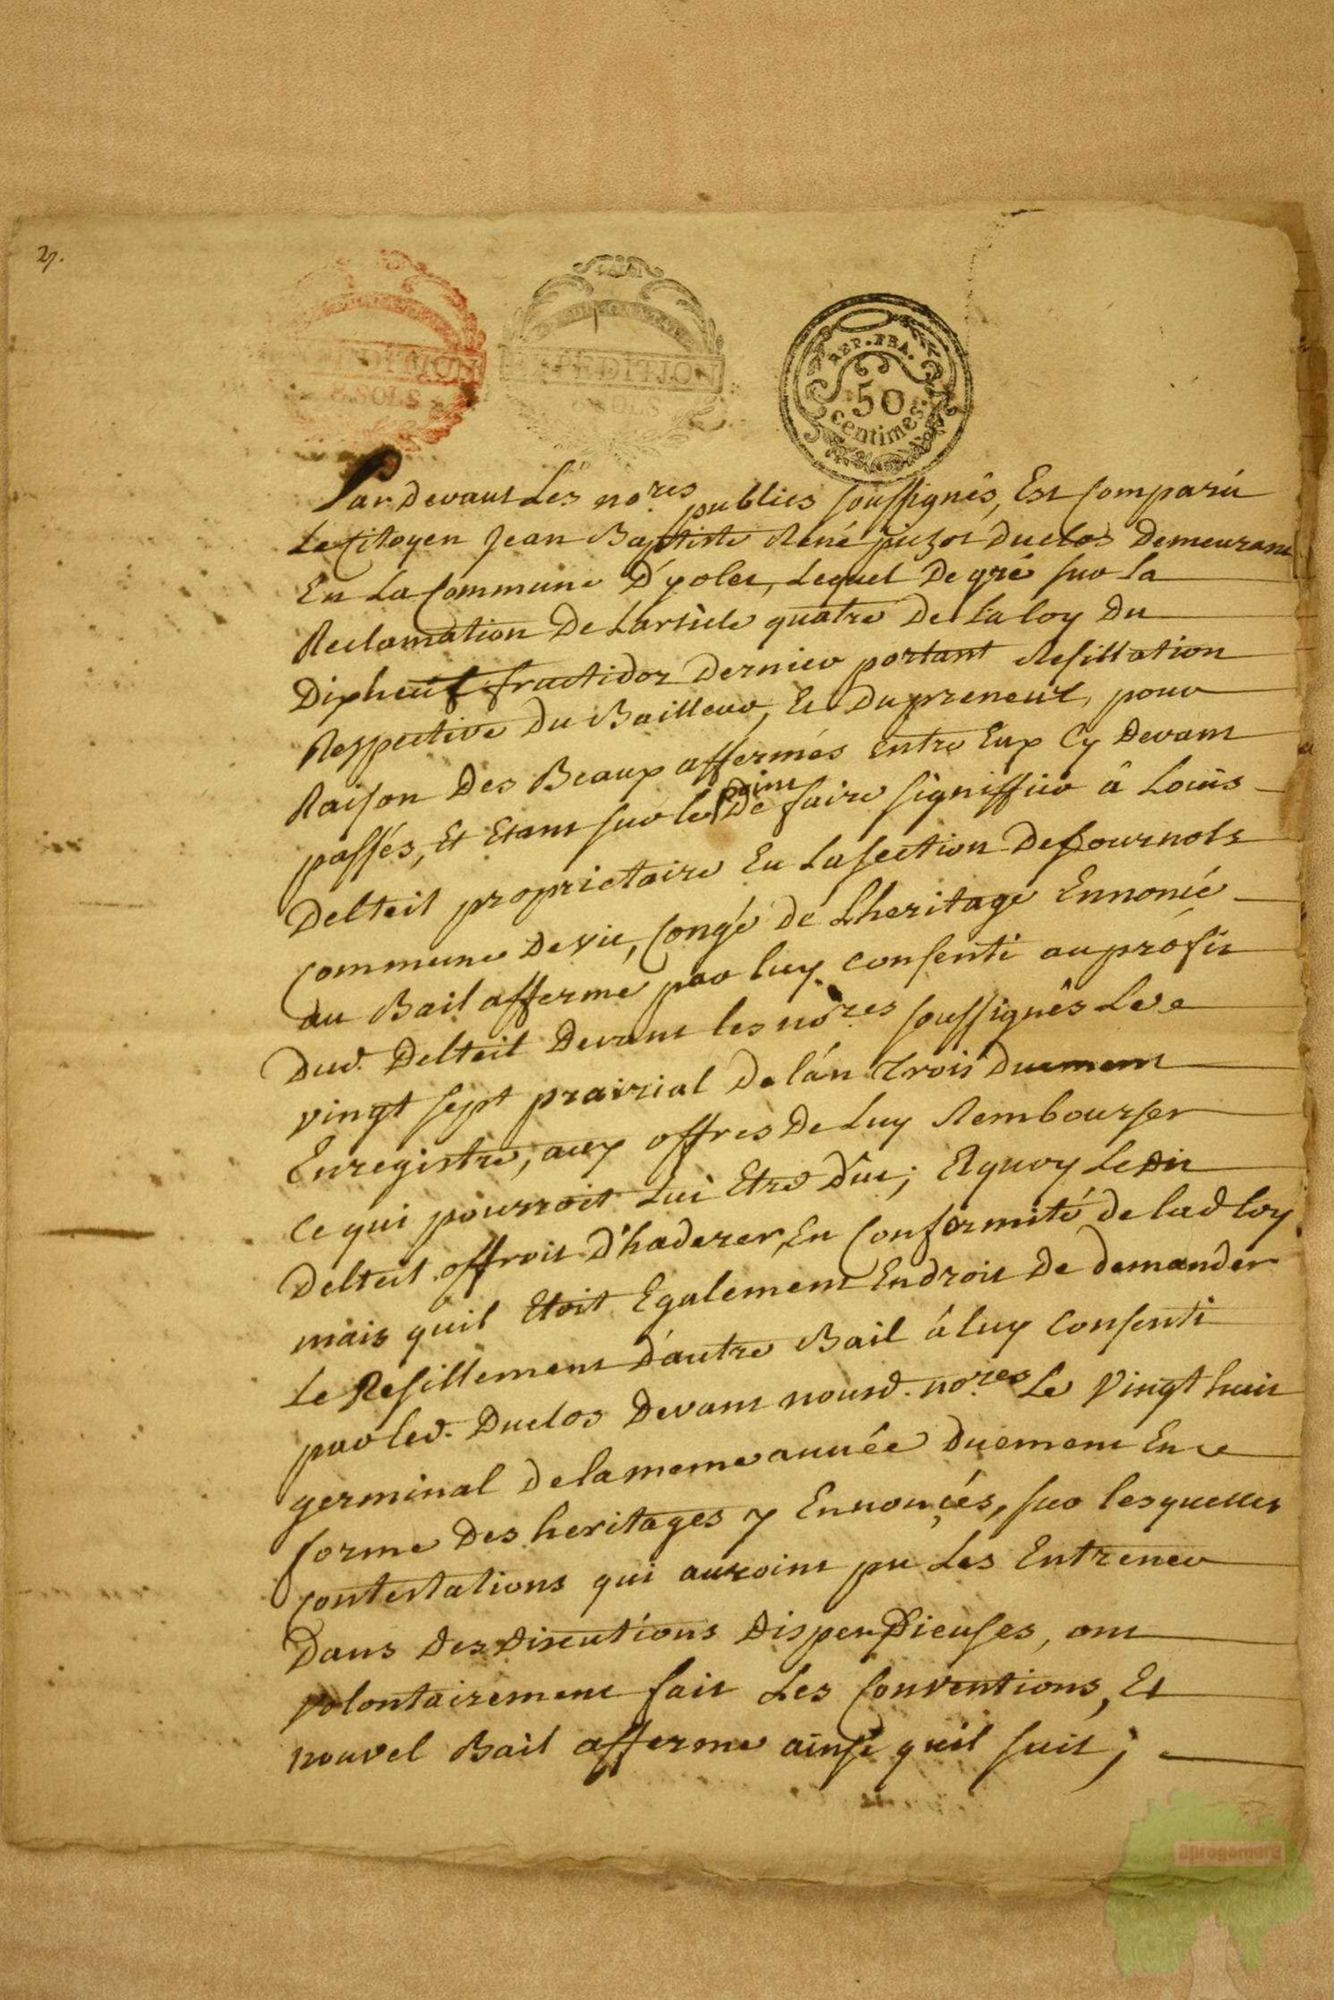 27.
REP. FRA.
50
centimes.
8 SOLS
Par Devant Les no.res publics soussignés, Est Comparû
Le Citoyen Jean Baptiste René Duclos Demeurant
En La Commune D'yolet, Lequel De gré sur la
Reclamation De L'article quatre De La loy du
Dixheuf fructidor Dernier portant Resiliation
Respective Du Bailleur, Et Du preneur, pour
Raison Des Beaux affermés Entre Eux Cy Devant
passés, Et Etant sur le point De faire signiffier â Louis
Delteil proprietaire En La section De fournols
commune De vic, Congé de L'heritage Ennoncé
au Bail afferme par luy consenti au profit
Dud. Delteil Devant les no.res soussignês Le
vingt sept prairial De l'án Trois Duement
Enregistre, aux offres De Luy Rembourser
Ce qui pourroit Lui Etre Dûe; A quoy Ledit
Delteil offroit D'haderer, En Conformité de lad loy
mais quil Etoit Egalement En droit De demander
Le Resillement D'autre Bail â luy Consenti
par led. Duclos Devant nousd. no.res Le Vingt huit
germinal De la meme année Duement En
forme Des heritages y Ennonçés, sur lesquelles
contestations qui auroint pu Les Entrener
Dans Des Discutions Dispendieuses, ont
volontairement fait Les Conventions, Et
nouvel Bail afferme ainsi quil suit;
aprogemere